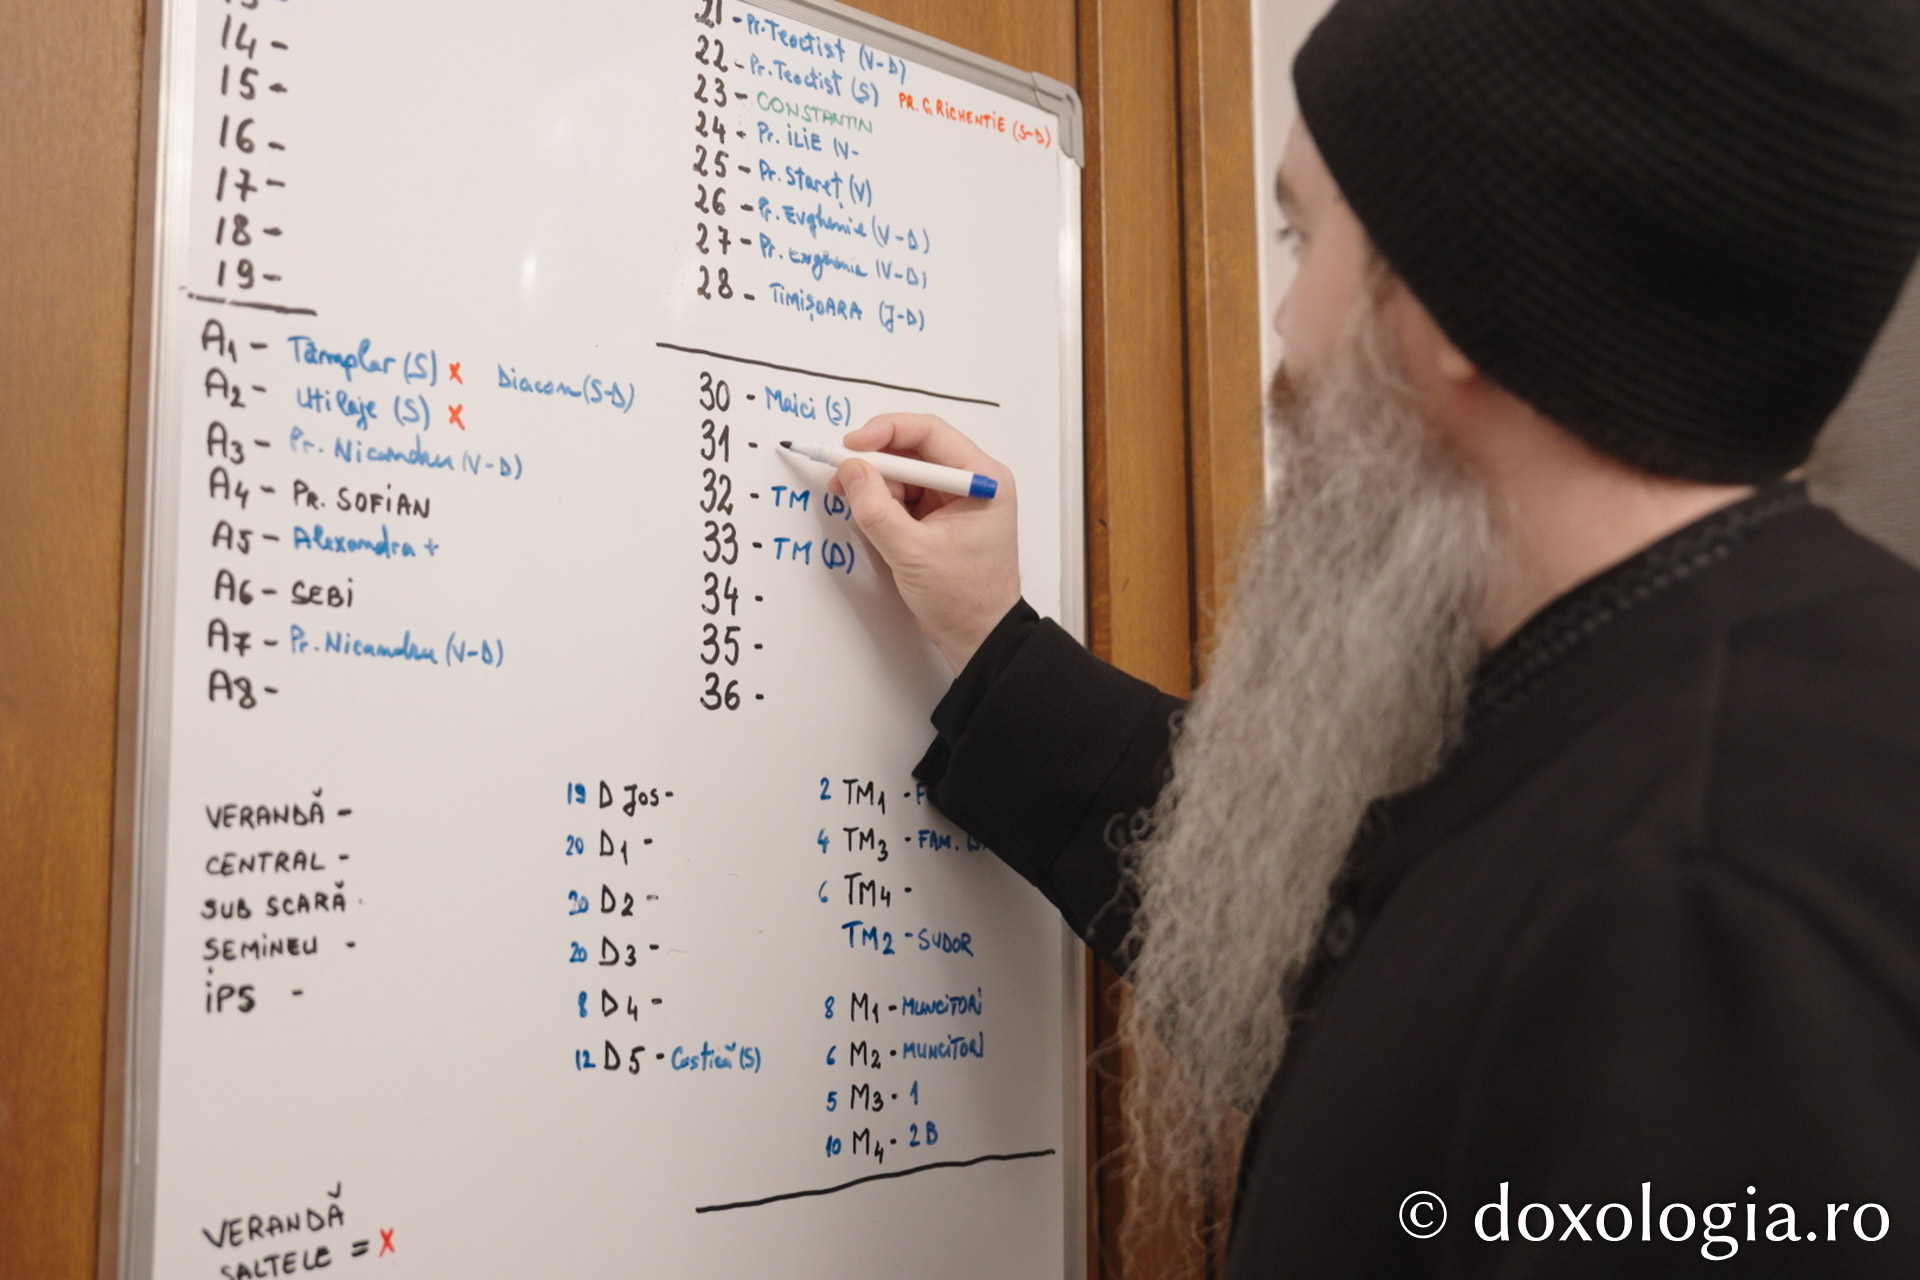 14 -
15 -
16 -
17 -
18 -
19 -
A1 - Tâmplar (S) x Diacon (S-D)
A2 - Utilaje (S) x
A3 - Pr. Nicandru (V-D)
A4 - PR. SOFIAN
A5 - Alexandra +
A6 - SEBI
A7 - Pr. Nicandru (V-D)
A8 -
VERANDĂ -
CENTRAL -
SUB SCARĂ
ȘEMINEU -
IPS -
VERANDĂ
SALTELE = X
21 - Pr. Teoctist (V-D)
22 - Pr. Teoctist (S)
23 - CONSTANTIN PR. G. RICHENTIE (S-D)
24 - Pr. ILIE (V-
25 - Pr. Stareț (V)
26 - Pr. Evghenie (V-D)
27 - Pr. Evghenie (V-D)
28 - TIMIȘOARA (J-D)
30 - Maici (S)
31 -
32 - TM (D)
33 - TM (D)
34 -
35 -
36 -
19 D Jos -
20 D1 -
20 D2 -
20 D3 -
8 D4 -
12 D5 - Costică (S)
2 TM1 - F
4 TM3 - FAM.
6 TM4 -
TM2 - SUDOR
8 M1 - MUNCITORI
6 M2 - MUNCITORI
5 M3 - 1
10 M4 - 2B
© doxologia.ro